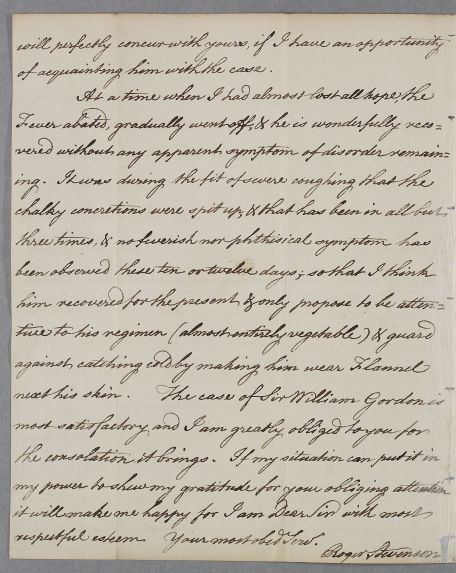 will perfectly concur with yours, if I have an opportunity
of acquainting him with the case.
At a time when I had almost lost all hope, the
Fever abated, gradually went off, & he is wonderfully reco=
vered without any apparent symptom of disorder remain=
ing. It was during the fit of severe coughing that the
chalky concretions were spit up, & that has been in all but
three times, & no feverish nor phthisical symptom has
been observed these ten or twelve days; so that I think
him recovered for the present & only propose to be atten=
tive to his regimen (almost entirely vegetable) & guard
against catching cold by making him wear Flannel
next his skin. The case of Sir William Gordon is
most satisfactory and I am greatly obliged to you for
the consolation it brings. If my situation can put it in
my power to shew my gratitude for your obliging attention
it will make me happy for I am Dear Sir with most
respectful esteem Your most obed.t Serv.t
Roger Stevenson